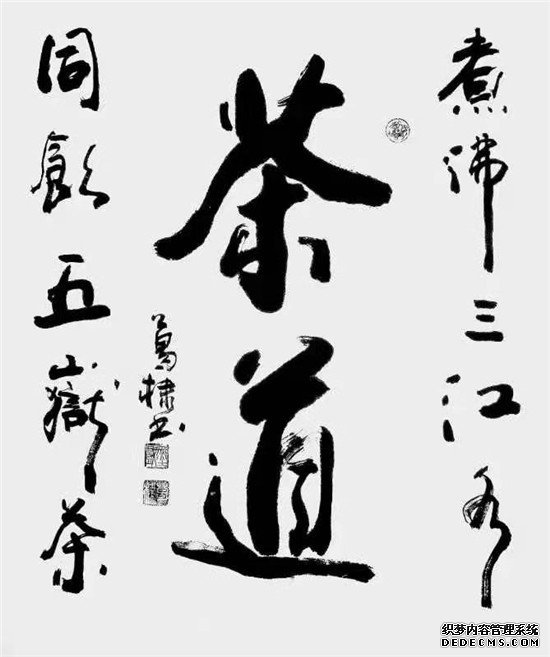 煮沸三江水
茶道
同飲五嶽茶
葛棣书
织梦内容管理系统
DEDECMS.COM